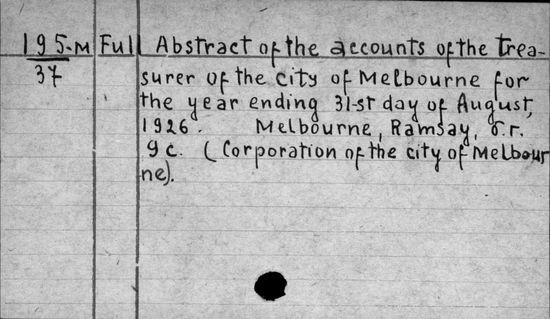 195-M Full Abstract of the accounts of the Trea-
37 surer of the city of Melbourne for
the year ending 31-st day of August,
1926. Melbourne, Ramsay, б.г.
9 с. (Corporation of the city of Melbour
ne).